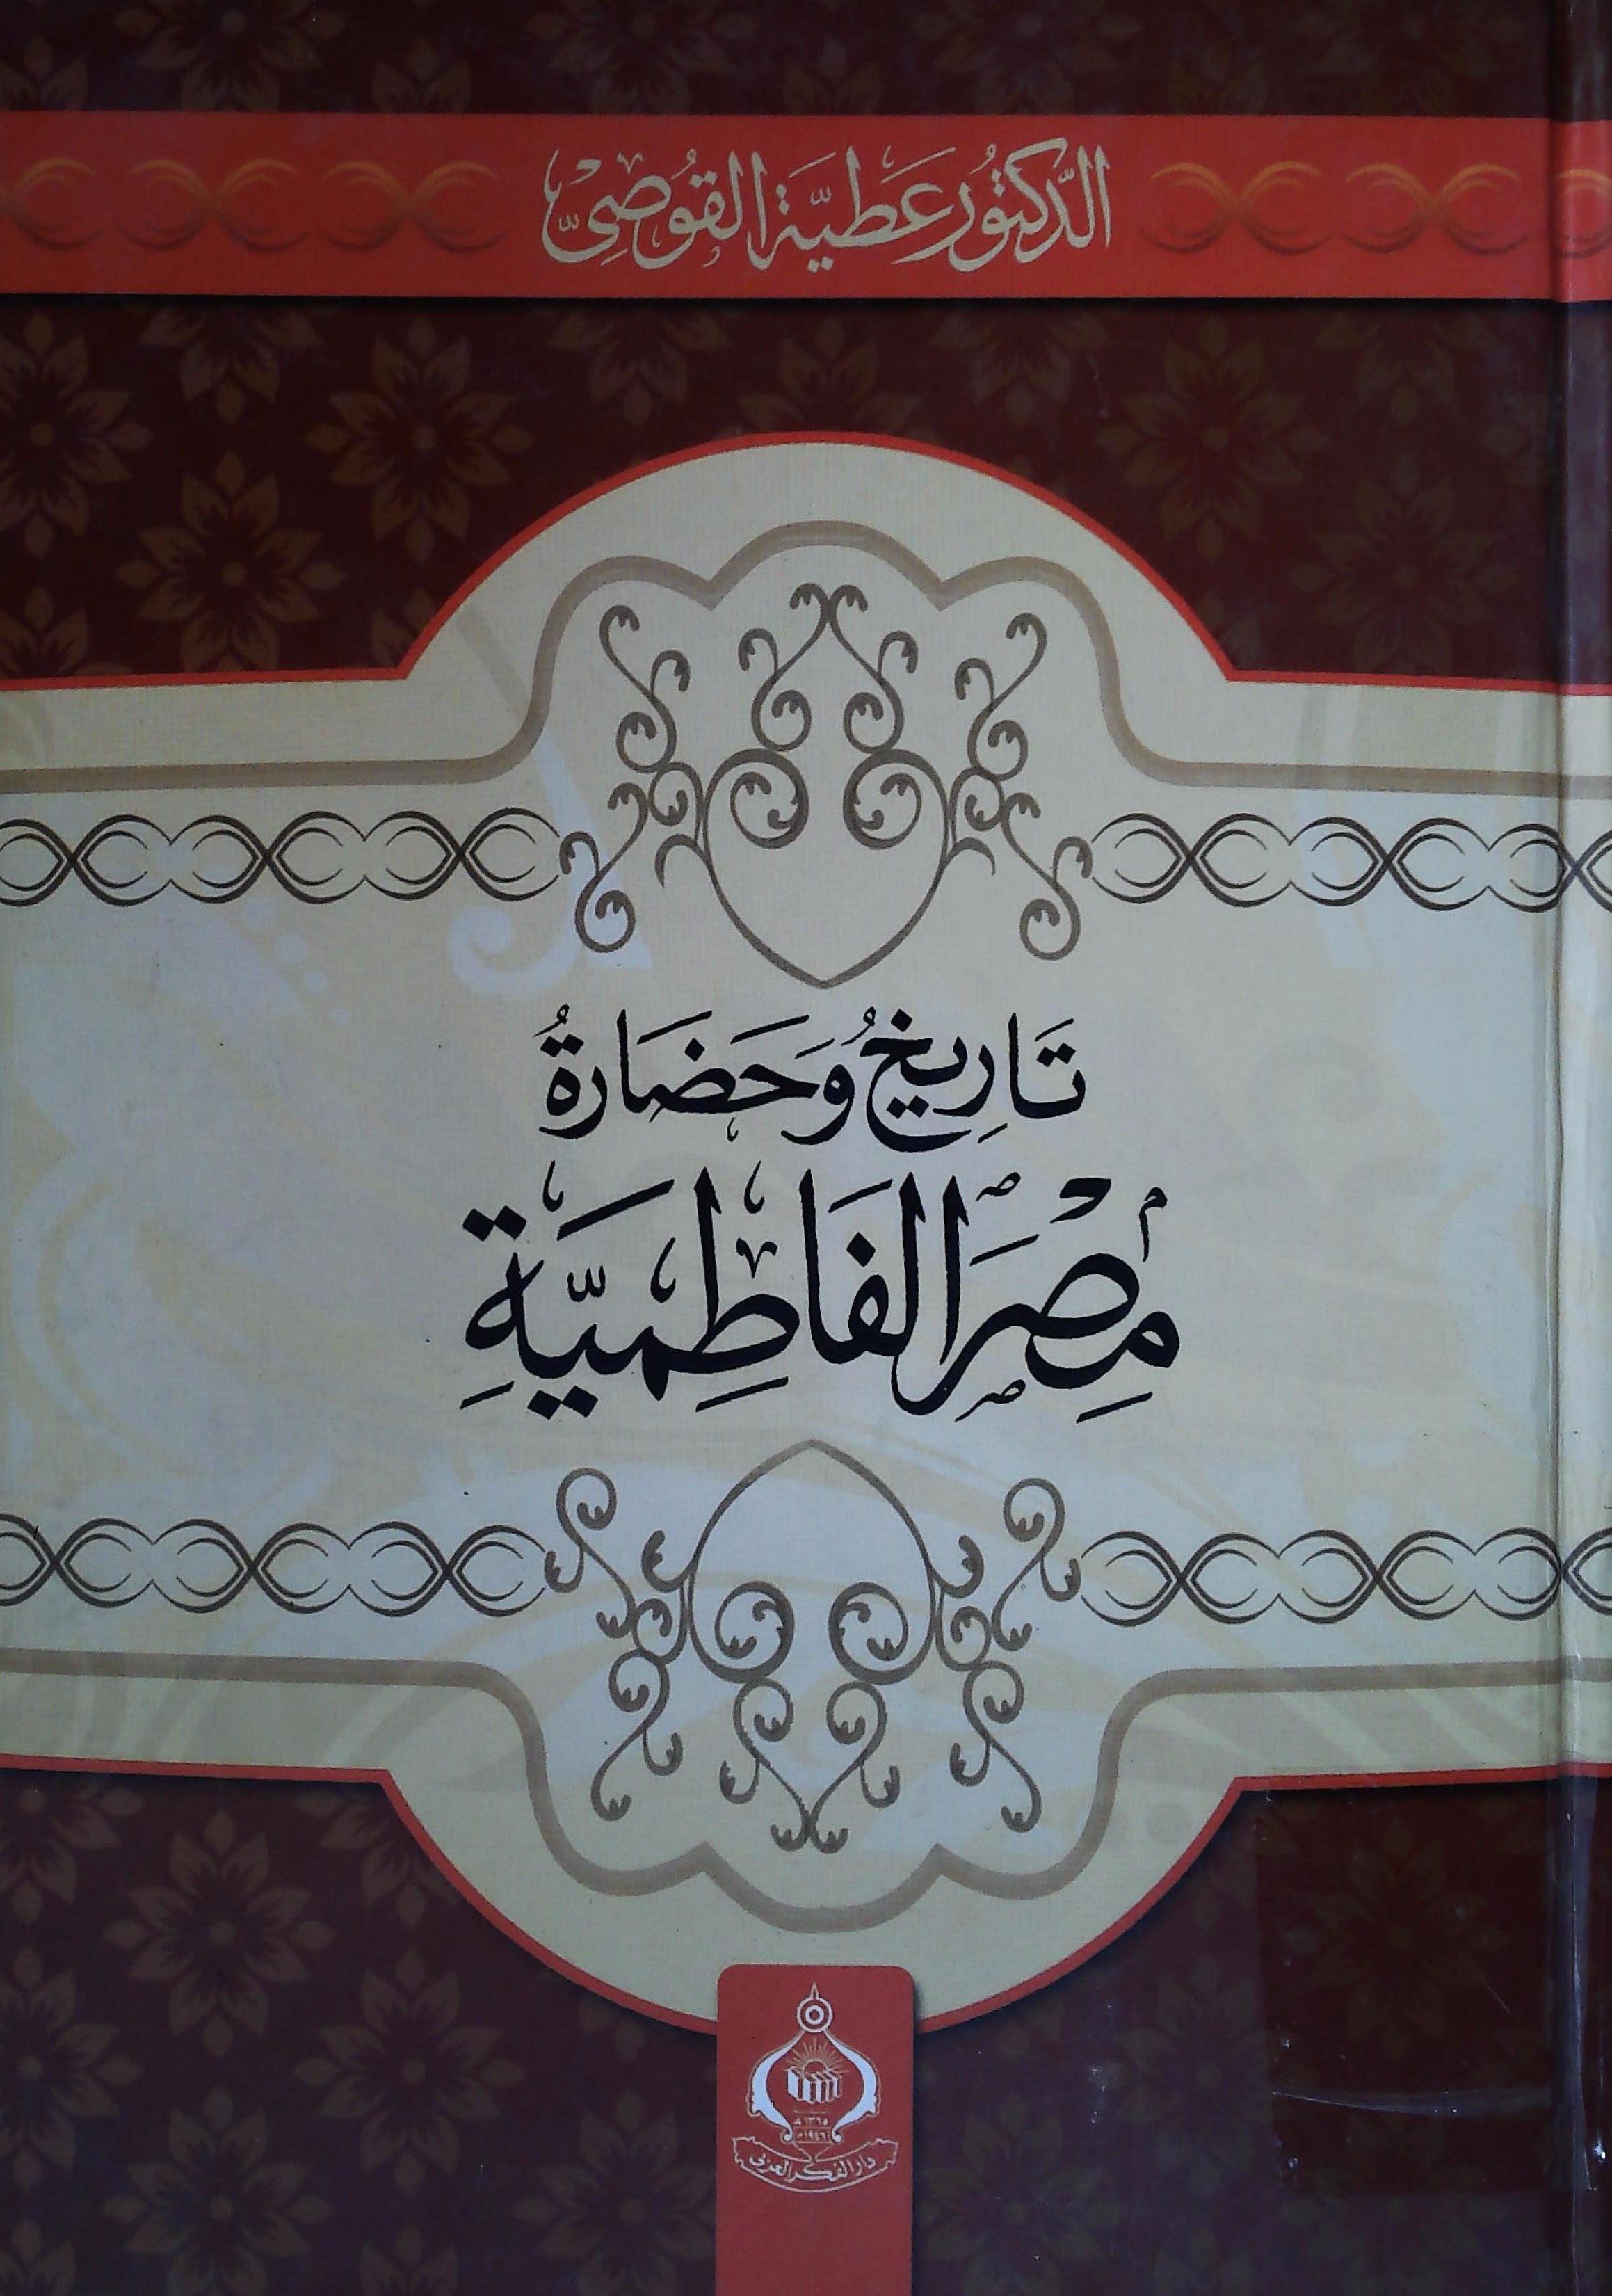 الدَّكتُور عَطيَّة القُوصِيّ
تَارِيخُ وَحَضَارَةُ
مِصْرَ الفَاطِمِيَّةِ
١٣٦٥ هـ
١٩٤٦ م
دار الفكر العربي